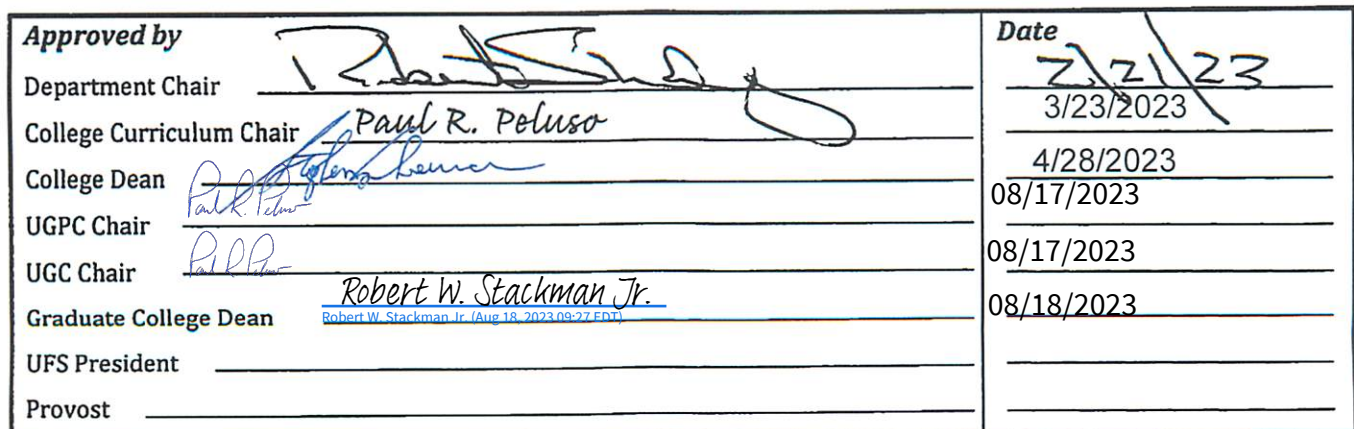 Approved by Date
Department Chair 2/21/23
College Curriculum Chair Paul R. Peluso 3/23/2023
College Dean 4/28/2023
UGPC Chair Paul R. Peluso 08/17/2023
UGC Chair Paul R Peluso 08/17/2023
Graduate College Dean Robert W. Stackman Jr. 08/18/2023
Robert W. Stackman Jr. (Aug 18, 2023 09:27 EDT)
UFS President
Provost